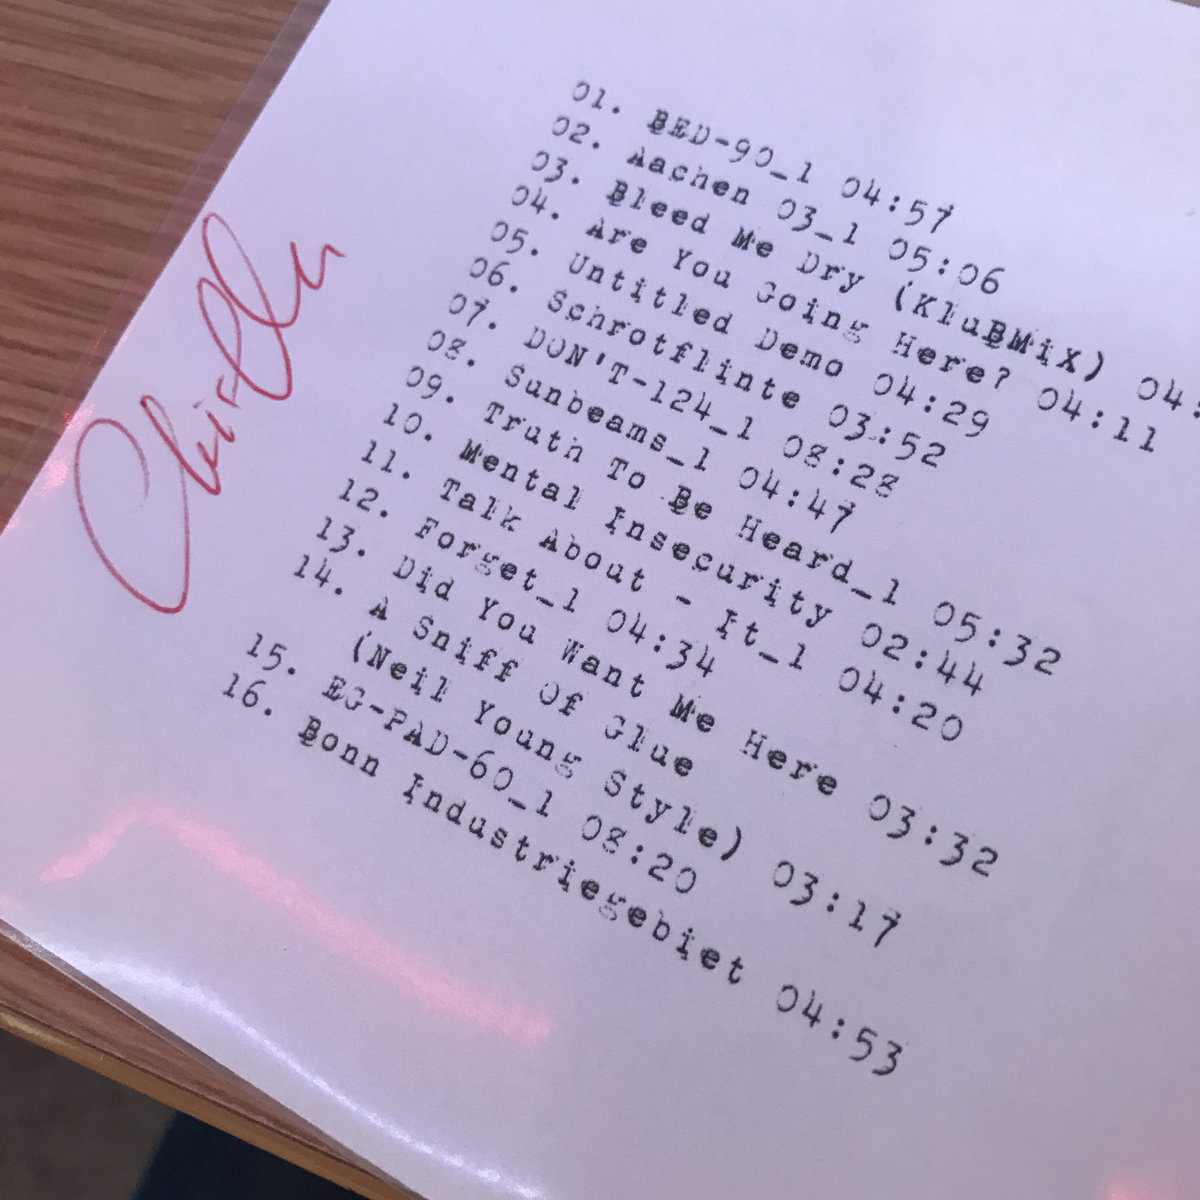 01. BED-90_1 04:57
02. Aachen 03_1 05:06
03. Bleed Me Dry (KluBMiX) 04:
04. Are You Going Here? 04:11
05. Untitled Demo 04:29
06. Schrotflinte 03:52
07. DON'T-124_1 08:28
08. Sunbeams_1 04:47
09. Truth To Be Heard_1 05:32
10. Mental Insecurity 02:44
11. Talk About - It_1 04:20
12. Forget_1 04:34
13. Did You Want Me Here 03:32
14. A Sniff Of Glue
(Neil Young Style) 03:17
15. EG-PAD-60_1 08:20
16. Bonn Industriegebiet 04:53